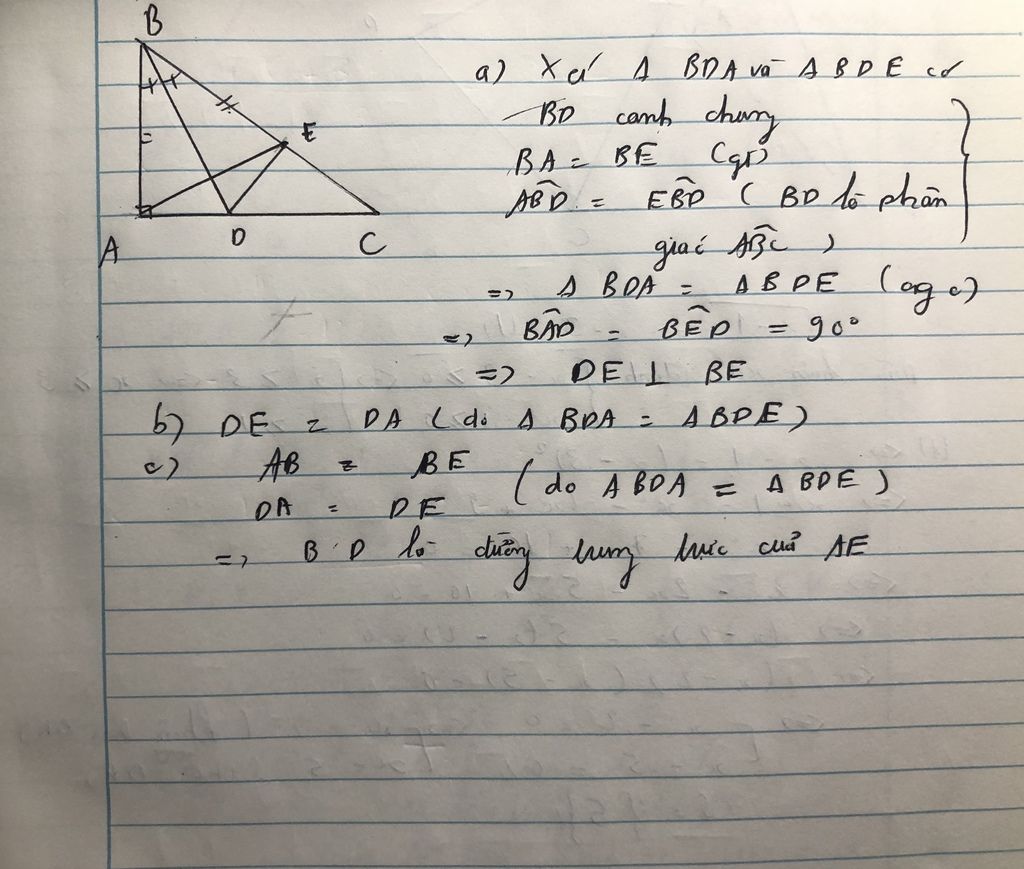 B
E
A
D
C
a) Xét Δ BDA và Δ BDE có
BD canh chung
BA = BE (gt)
ABD̂ = EBD̂ ( BD là phân
giác ABĈ )
=> Δ BDA = Δ BDE (cgc)
=> BAD̂ = BED̂ = 90°
=> DE ⊥ BE
b) DE = DA ( do Δ BDA = Δ BDE )
c) AB = BE
DA = DE ( do Δ BDA = Δ BDE )
=> BD là đường trung trực của AE